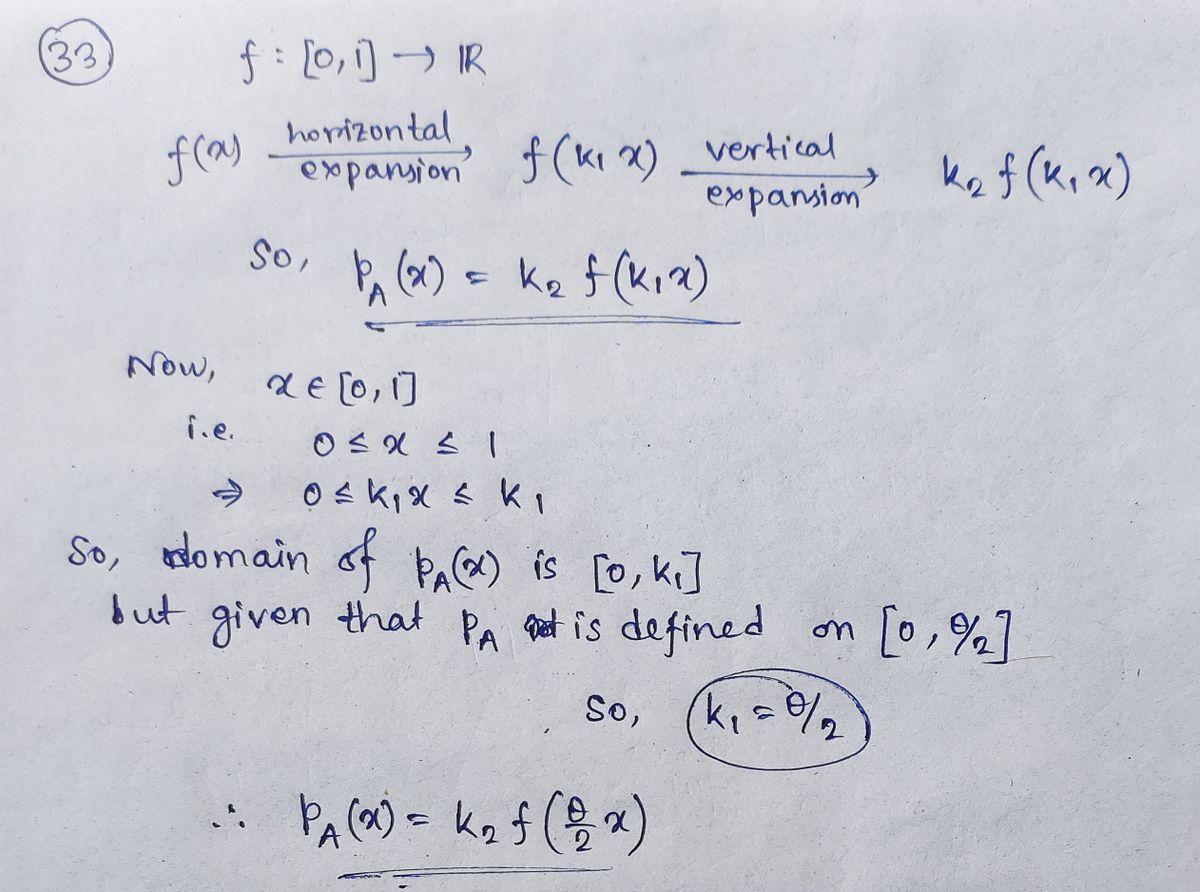 33
f : [0,1] → ℝ
f(x) horizontal expansion → f(k₁x) vertical expansion → k₂f(k₁x)
So, p_A(x) = k₂ f(k₁x)
Now, x ∈ [0,1]
i.e. 0 ≤ x ≤ 1
⇒ 0 ≤ k₁x ≤ k₁
So, domain of p_A(x) is [0, k₁]
but given that p_A is defined on [0, θ/2]
So, k₁ = θ/2
∴ p_A(x) = k₂ f(θ/2 x)